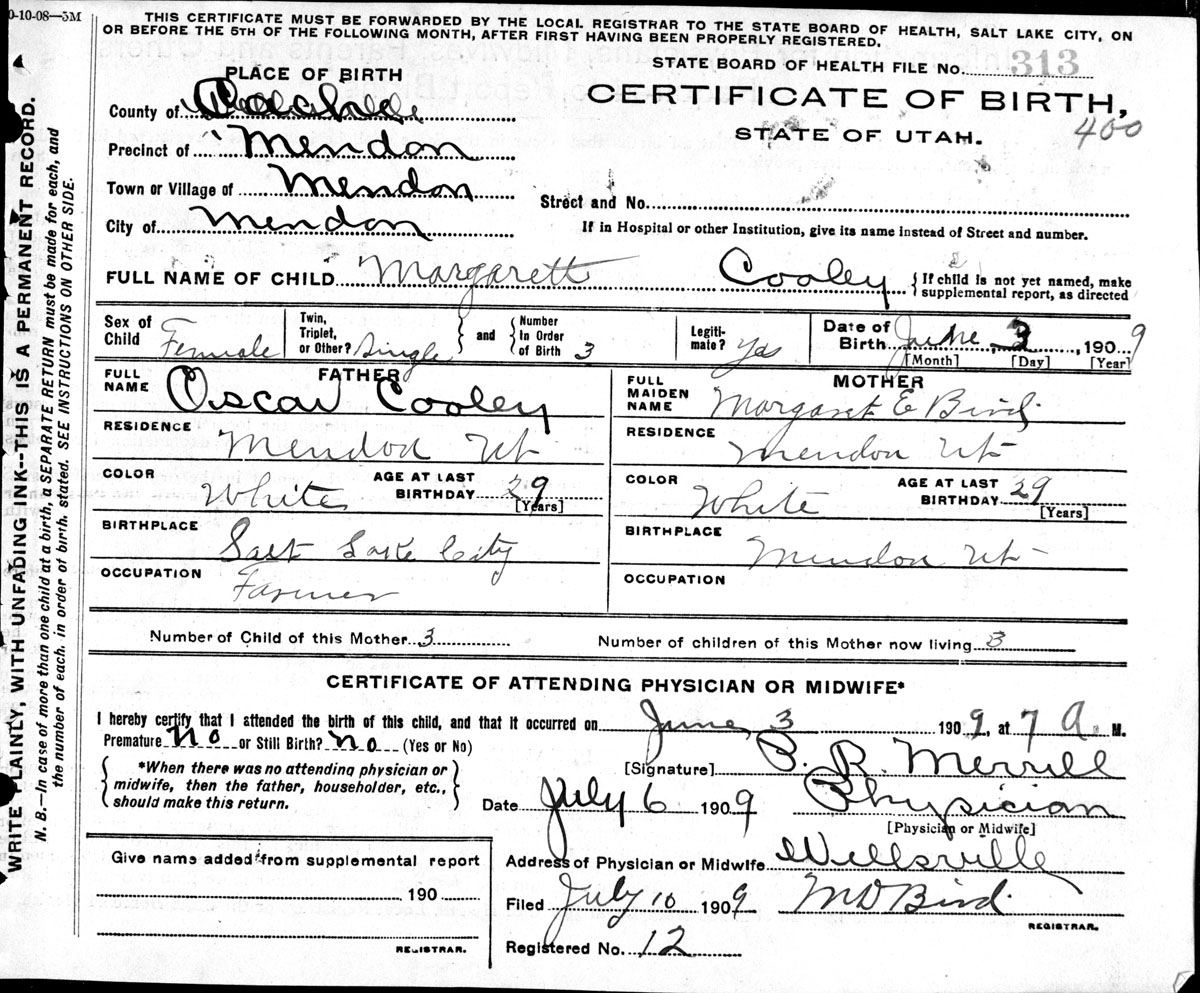 0-10-08—5M
THIS CERTIFICATE MUST BE FORWARDED BY THE LOCAL REGISTRAR TO THE STATE BOARD OF HEALTH, SALT LAKE CITY, ON
OR BEFORE THE 5TH OF THE FOLLOWING MONTH, AFTER FIRST HAVING BEEN PROPERLY REGISTERED.
STATE BOARD OF HEALTH FILE No. 313
PLACE OF BIRTH
CERTIFICATE OF BIRTH,
STATE OF UTAH.
400
County of
Precinct of Mendon
Town or Village of Mendon
City of Mendon
Street and No.
If in Hospital or other Institution, give its name instead of Street and number.
FULL NAME OF CHILD Margarett Cooley { If child is not yet named, make supplemental report, as directed
Sex of Child Female
Twin, Triplet, or Other? Single } and { Number In Order of Birth 3
Legiti-mate? Yes
Date of Birth June 3, 1909
[Month] [Day] [Year]
FATHER
FULL NAME Oscar Cooley
RESIDENCE Mendon Ut
COLOR White AGE AT LAST BIRTHDAY 29 [Years]
BIRTHPLACE Salt Lake City
OCCUPATION Farmer
MOTHER
FULL MAIDEN NAME Margaret E Bird
RESIDENCE Mendon Ut
COLOR White AGE AT LAST BIRTHDAY 29 [Years]
BIRTHPLACE Mendon Ut
OCCUPATION
Number of Child of this Mother 3 Number of children of this Mother now living 3
CERTIFICATE OF ATTENDING PHYSICIAN OR MIDWIFE*
I hereby certify that I attended the birth of this child, and that it occurred on June 3 1909, at 7 A. M.
Premature No or Still Birth? No (Yes or No)
{ *When there was no attending physician or midwife, then the father, householder, etc., should make this return. }
[Signature] P. R. Merrill
Date July 6 1909 Physician
[Physician or Midwife]
Give name added from supplemental report
190
REGISTRAR.
Address of Physician or Midwife Wellsville
Filed July 10 1909 M D Bird
REGISTRAR.
Registered No. 12
WRITE PLAINLY, WITH UNFADING INK--THIS IS A PERMANENT RECORD.
N. B.—In case of more than one child at a birth, a SEPARATE RETURN must be made for each, and
the number of each, in order of birth, stated. SEE INSTRUCTIONS ON OTHER SIDE.